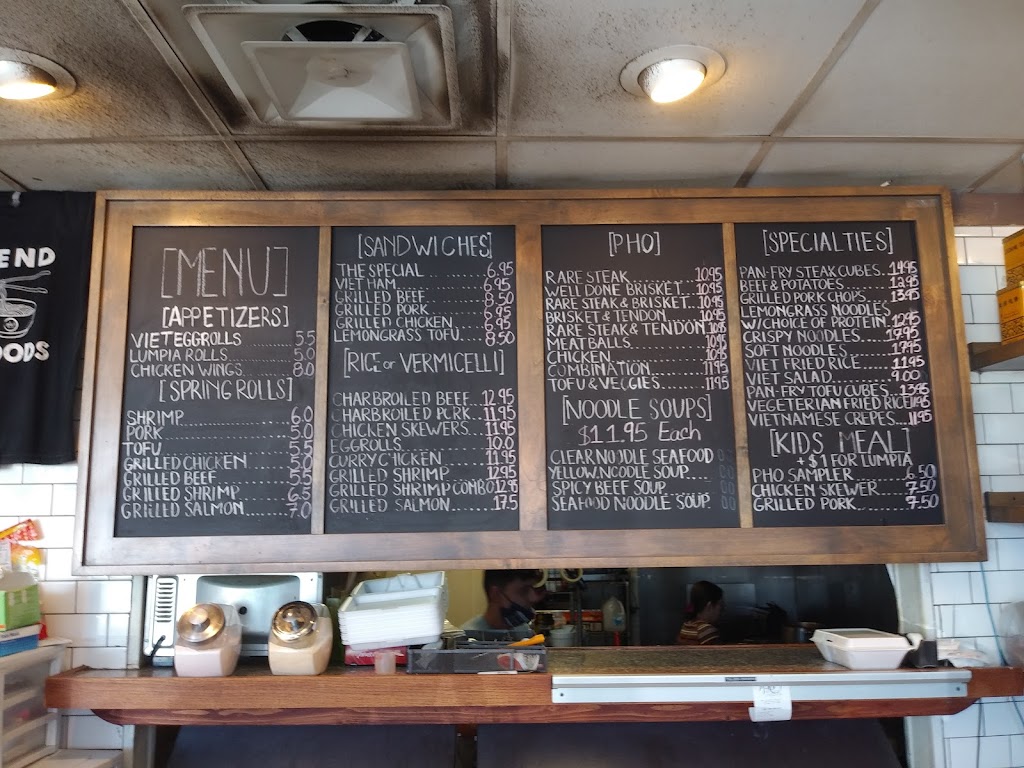 END
OODS
[MENU]
[APPETIZERS]
VIET EGGROLLS 5.5
LUMPIA ROLLS 5.0
CHICKEN WINGS 8.0
[SPRING ROLLS]
SHRIMP 6.0
PORK 5.0
TOFU 5.5
GRILLED CHICKEN 5.0
GRILLED BEEF 5.5
GRILLED SHRIMP 6.5
GRILLED SALMON 7.0
[SANDWICHES]
THE SPECIAL 6.95
VIET HAM 6.95
GRILLED BEEF 8.50
GRILLED PORK 6.95
GRILLED CHICKEN 6.95
LEMONGRASS TOFU 8.50
[RICE or VERMICELLI]
CHARBROILED BEEF 12.95
CHARBROILED PORK 11.95
CHICKEN SKEWERS 11.95
EGGROLLS 10.0
CURRY CHICKEN 11.95
GRILLED SHRIMP 12.95
GRILLED SHRIMP COMBO 12.95
GRILLED SALMON 17.5
[PHO]
RARE STEAK 10.95
WELL DONE BRISKET 10.95
RARE STEAK & BRISKET 10.95
BRISKET & TENDON 10.95
RARE STEAK & TENDON 10.95
MEATBALLS 10.95
CHICKEN 10.95
COMBINATION 11.95
TOFU & VEGGIES 11.95
[NOODLE SOUPS]
$11.95 Each
CLEAR NOODLE SEAFOOD
YELLOW NOODLE SOUP
SPICY BEEF SOUP
SEAFOOD NOODLE SOUP
[SPECIALTIES]
PAN-FRY STEAK CUBES 14.95
BEEF & POTATOES 12.95
GRILLED PORK CHOPS 13.95
LEMONGRASS NOODLES
W/CHOICE OF PROTEIN 12.95
CRISPY NOODLES 17.95
SOFT NOODLES 17.95
VIET FRIED RICE 11.95
VIET SALAD 9.00
PAN-FRY TOFU CUBES 13.95
VEGETERIAN FRIED RICE 11.95
VIETNAMESE CREPES 11.95
[KIDS MEAL]
+ $1 FOR LUMPIA
PHO SAMPLER 6.50
CHICKEN SKEWER 7.50
GRILLED PORK 7.50